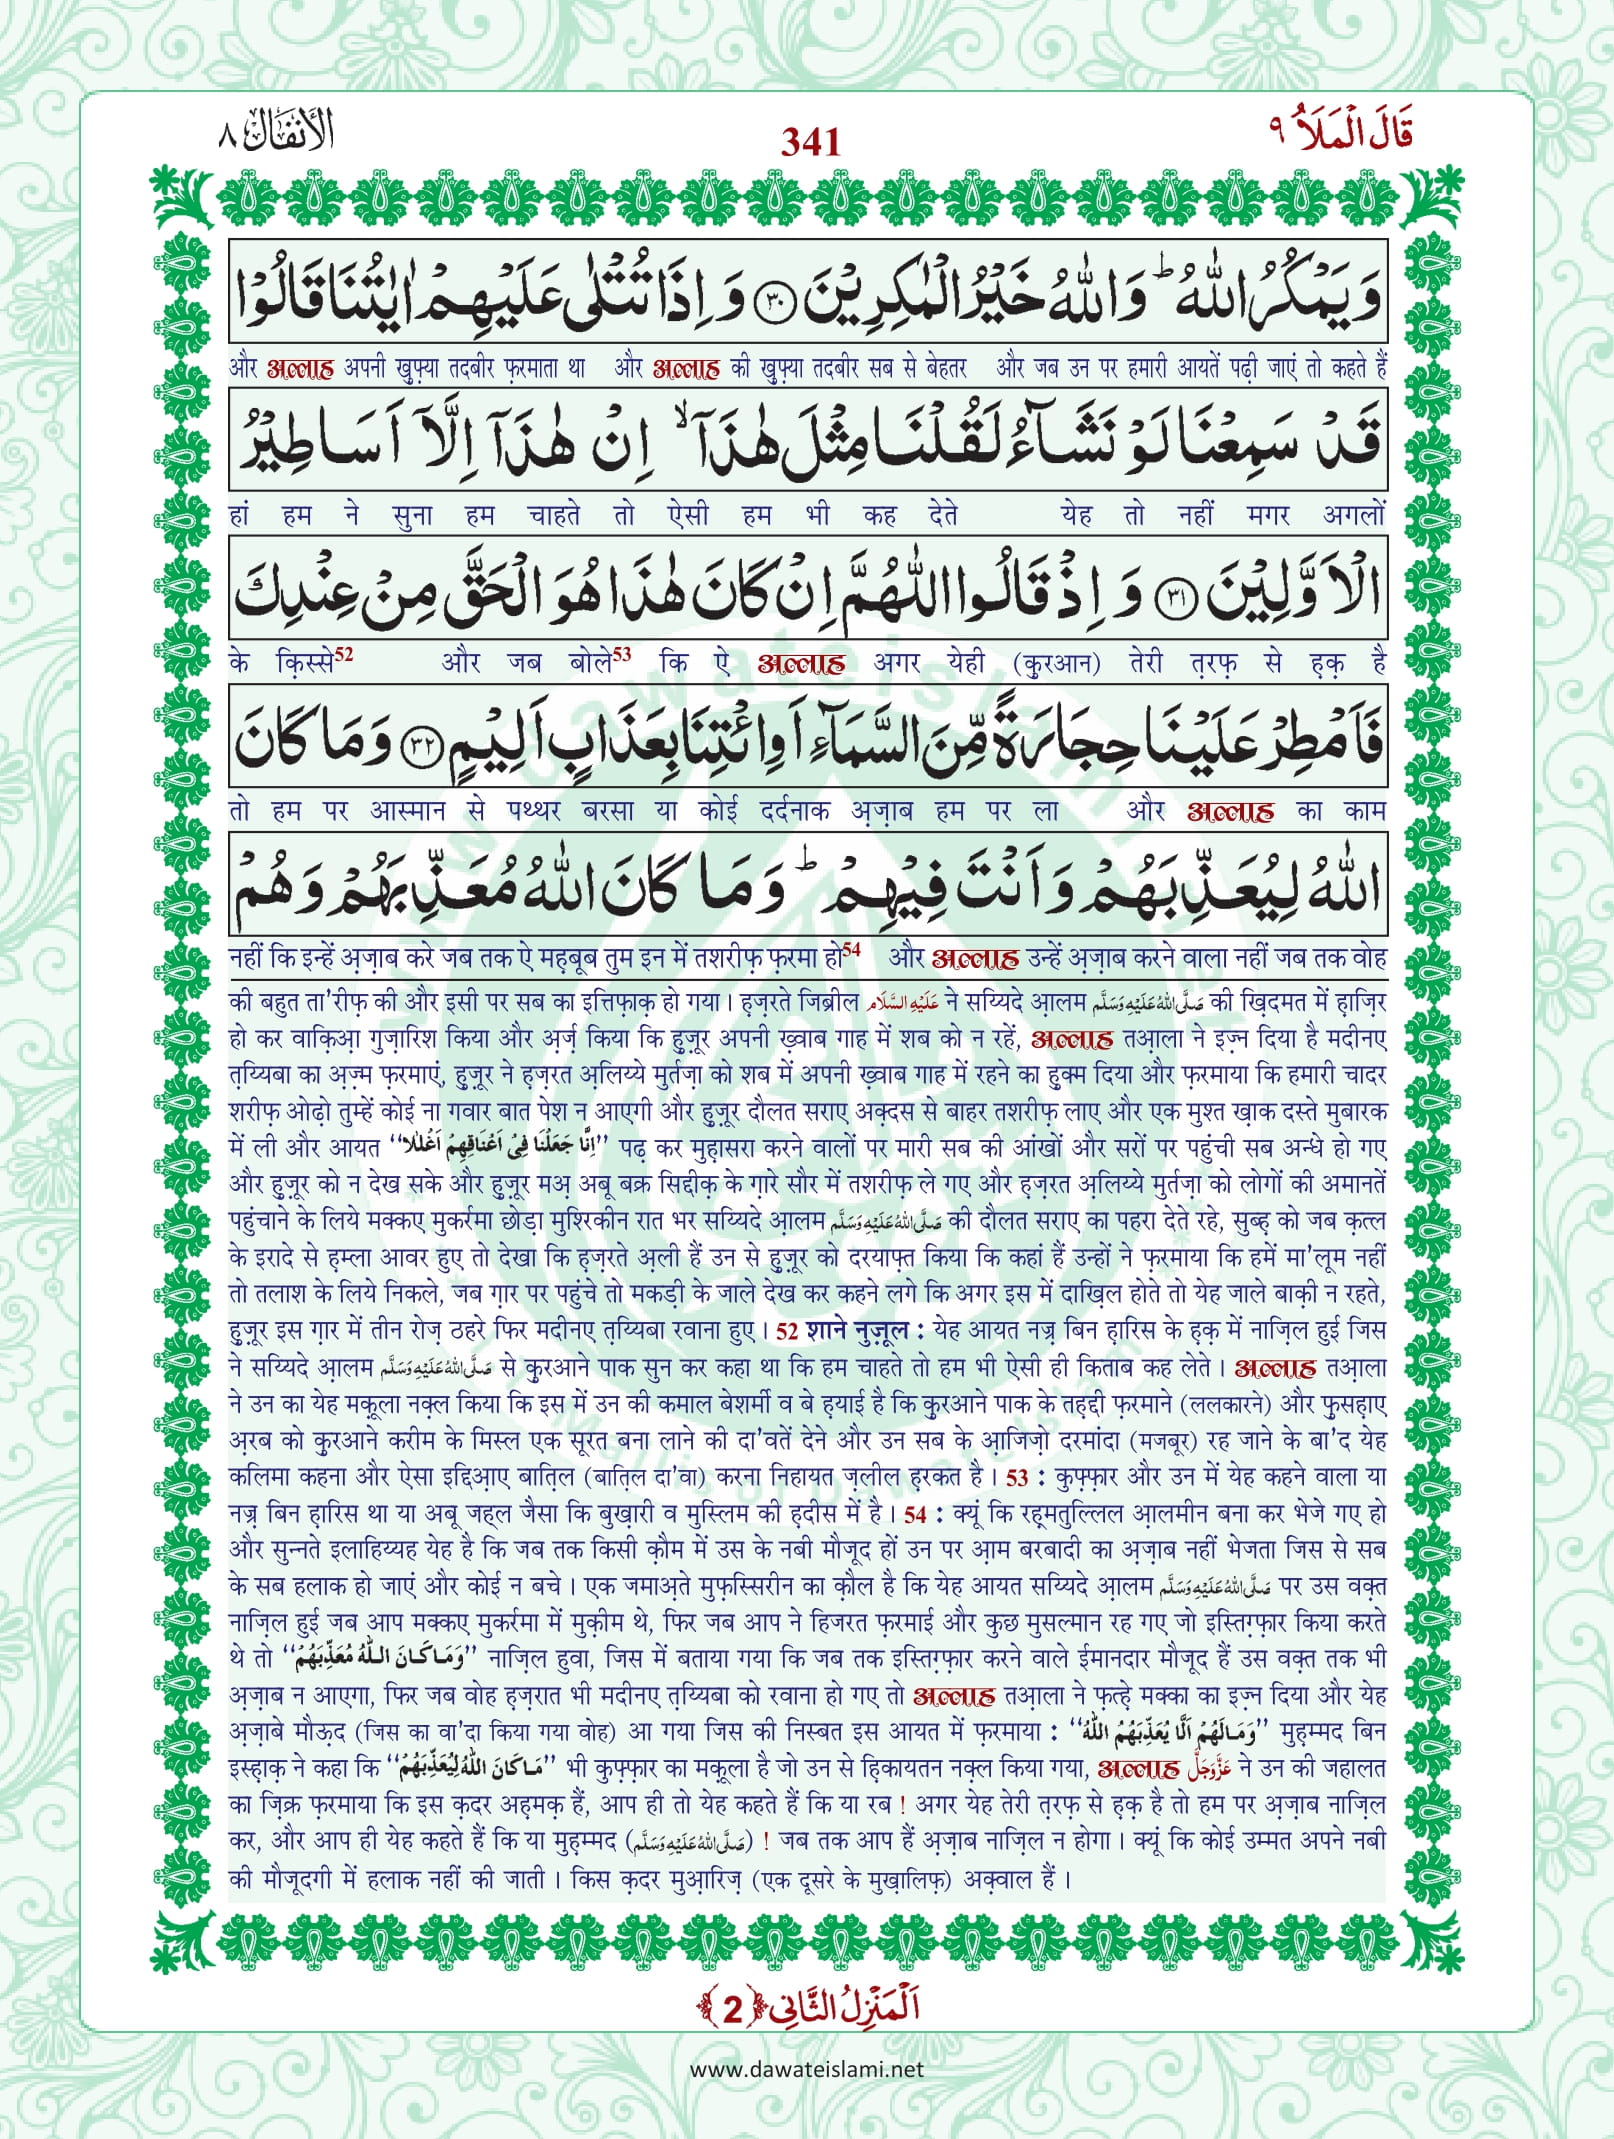 قَالَ الْمَلَاُ ٩
341
الْاَنْفَال ٨
وَيَمْكُرُ اللّٰهُ ؕ وَاللّٰهُ خَيْرُ الْمٰكِرِيْنَ ﴿٣٠﴾ وَاِذَا تُتْلٰى عَلَيْهِمْ اٰيٰتُنَا قَالُوْا
और अल्लाह अपनी ख़ुफ़्या तदबीर फ़रमाता था और अल्लाह की ख़ुफ़्या तदबीर सब से बेहतर और जब उन पर हमारी आयतें पढ़ी जाएं तो कहते हैं
قَدْ سَمِعْنَا لَوْ نَشَآءُ لَقُلْنَا مِثْلَ هٰذَآ ۙ اِنْ هٰذَآ اِلَّآ اَسَاطِيْرُ
हां हम ने सुना हम चाहते तो ऐसी हम भी कह देते येह तो नहीं मगर अगलों
الْاَوَّلِيْنَ ﴿٣١﴾ وَاِذْ قَالُوا اللّٰهُمَّ اِنْ كَانَ هٰذَا هُوَ الْحَقَّ مِنْ عِنْدِكَ
के क़िस्से52 और जब बोले53 कि ऐ अल्लाह अगर येही (क़ुरआन) तेरी त़रफ़ से ह़क़ है
فَاَمْطِرْ عَلَيْنَا حِجَارَةً مِّنَ السَّمَآءِ اَوِ ائْتِنَا بِعَذَابٍ اَلِيْمٍ ﴿٣٢﴾ وَمَا كَانَ
तो हम पर आस्मान से पथ्थर बरसा या कोई दर्दनाक अ़ज़ाब हम पर ला और अल्लाह का काम
اللّٰهُ لِيُعَذِّبَهُمْ وَاَنْتَ فِيْهِمْ ؕ وَمَا كَانَ اللّٰهُ مُعَذِّبَهُمْ وَهُمْ
नहीं कि इन्हें अ़ज़ाब करे जब तक ऐ महबूब तुम इन में तशरीफ़ फ़रमा हो54 और अल्लाह उन्हें अ़ज़ाब करने वाला नहीं जब तक वोह
की बहुत ता'रीफ़ की और इसी पर सब का इत्तिफ़ाक़ हो गया। ह़ज़रते जिब्रील عَلَيْهِ السَّلَام ने सय्यिदे आ़लम صَلَّى اللّٰهُ عَلَيْهِ وَسَلَّم की ख़िदमत में ह़ाज़िर
हो कर वाक़िआ़ गुज़ारिश किया और अ़र्ज़ किया कि हुज़ूर अपनी ख़्वाब गाह में शब को न रहें, अल्लाह तआ़ला ने इज़्न दिया है मदीनए
त़य्यिबा का अ़ज़्म फ़रमाएं, हुज़ूर ने ह़ज़रत अ़लिय्ये मुर्तज़ा को शब में अपनी ख़्वाब गाह में रहने का हुक्म दिया और फ़रमाया कि हमारी चादर
शरीफ़ ओढ़ो तुम्हें कोई ना गवार बात पेश न आएगी और हुज़ूर दौलत सराए अक़्दस से बाहर तशरीफ़ लाए और एक मुश्त ख़ाक दस्ते मुबारक
में ली और आयत "اِنَّا جَعَلْنَا فِىْ اَعْنَاقِهِمْ اَغْلٰلًا" पढ़ कर मुह़ासरा करने वालों पर मारी सब की आंखों और सरों पर पहुंची सब अन्धे हो गए
और हुज़ूर को न देख सके और हुज़ूर मअ़ अबू बक्र सिद्दीक़ के ग़ारे सौर में तशरीफ़ ले गए और ह़ज़रत अ़लिय्ये मुर्तज़ा को लोगों की अमानतें
पहुंचाने के लिये मक्कए मुकर्रमा छोड़ा मुश्रिकीन रात भर सय्यिदे आ़लम صَلَّى اللّٰهُ عَلَيْهِ وَسَلَّم की दौलत सराए का पहरा देते रहे, सुब्ह़ को जब क़त्ल
के इरादे से ह़म्ला आवर हुए तो देखा कि ह़ज़रते अ़ली हैं उन से हुज़ूर को दरयाफ़्त किया कि कहां हैं उन्हों ने फ़रमाया कि हमें मा'लूम नहीं
तो तलाश के लिये निकले, जब ग़ार पर पहुंचे तो मकड़ी के जाले देख कर कहने लगे कि अगर इस में दाख़िल होते तो येह जाले बाक़ी न रहते,
हुज़ूर इस ग़ार में तीन रोज़ ठहरे फिर मदीनए त़य्यिबा रवाना हुए। 52 शाने नुज़ूल : येह आयत नज़्र बिन ह़ारिस के ह़क़ में नाज़िल हुई जिस
ने सय्यिदे आ़लम صَلَّى اللّٰهُ عَلَيْهِ وَسَلَّم से क़ुरआने पाक सुन कर कहा था कि हम चाहते तो हम भी ऐसी ही किताब कह लेते। अल्लाह तआ़ला
ने उन का येह मक़ूला नक़्ल किया कि इस में उन की कमाल बेशर्मी व बे ह़याई है कि क़ुरआने पाक के तह़द्दी फ़रमाने (ललकारने) और फ़ुसह़ाए
अ़रब को क़ुरआने करीम के मिस्ल एक सूरत बना लाने की दा'वतें देने और उन सब के आ़जिज़ो दरमांदा (मजबूर) रह जाने के बा'द येह
कलिमा कहना और ऐसा इद्दिआ़ए बात़िल (बात़िल दा'वा) करना निहायत ज़लील ह़रकत है। 53 : कुफ़्फ़ार और उन में येह कहने वाला या
नज़्र बिन ह़ारिस था या अबू जह्ल जैसा कि बुख़ारी व मुस्लिम की ह़दीस में है। 54 : क्यूं कि रह़्मतुल्लिल आ़लमीन बना कर भेजे गए हो
और सुन्नते इलाहिय्यह येह है कि जब तक किसी क़ौम में उस के नबी मौजूद हों उन पर आ़म बरबादी का अ़ज़ाब नहीं भेजता जिस से सब
के सब हलाक हो जाएं और कोई न बचे। एक जमाअ़ते मुफ़स्सिरीन का क़ौल है कि येह आयत सय्यिदे आ़लम صَلَّى اللّٰهُ عَلَيْهِ وَسَلَّم पर उस वक़्त
नाज़िल हुई जब आप मक्कए मुकर्रमा में मुक़ीम थे, फिर जब आप ने हिजरत फ़रमाई और कुछ मुसल्मान रह गए जो इस्तिग़्फ़ार किया करते
थे तो "وَمَا كَانَ اللّٰهُ مُعَذِّبَهُمْ" नाज़िल हुवा, जिस में बताया गया कि जब तक इस्तिग़्फ़ार करने वाले ईमानदार मौजूद हैं उस वक़्त तक भी
अ़ज़ाब न आएगा, फिर जब वोह ह़ज़रात भी मदीनए त़य्यिबा को रवाना हो गए तो अल्लाह तआ़ला ने फ़त्ह़े मक्का का इज़्न दिया और येह
अ़ज़ाबे मौऊ़द (जिस का वा'दा किया गया वोह) आ गया जिस की निस्बत इस आयत में फ़रमाया : "وَمَا لَهُمْ اَلَّا يُعَذِّبَهُمُ اللّٰهُ" मुह़म्मद बिन
इस्ह़ाक़ ने कहा कि "مَا كَانَ اللّٰهُ لِيُعَذِّبَهُمْ" भी कुफ़्फ़ार का मक़ूला है जो उन से ह़िकायतन नक़्ल किया गया, अल्लाह عَزَّوَجَلَّ ने उन की जहालत
का ज़िक्र फ़रमाया कि इस क़दर अह़मक़ हैं, आप ही तो येह कहते हैं कि या रब ! अगर येह तेरी त़रफ़ से ह़क़ है तो हम पर अ़ज़ाब नाज़िल
कर, और आप ही येह कहते हैं कि या मुह़म्मद (صَلَّى اللّٰهُ عَلَيْهِ وَسَلَّم) ! जब तक आप हैं अ़ज़ाब नाज़िल न होगा। क्यूं कि कोई उम्मत अपने नबी
की मौजूदगी में हलाक नहीं की जाती। किस क़दर मुआ़रिज़ (एक दूसरे के मुख़ालिफ़) अक़्वाल हैं।
اَلْمَنْزِلُ الثَّانِى ﴿2﴾
www.dawateislami.net